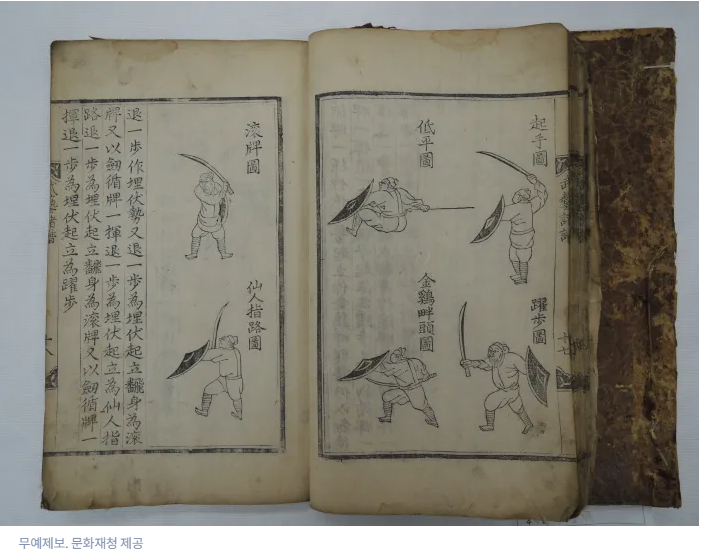 起手圖
躍步圖
低平圖
金鷄畔頭圖
十七
滾牌圖
仙人指路圖
退一步作埋伏勢又退一步為埋伏起立飜身為滾
牌又以劍循牌一揮退一步為埋伏起立為仙人指
路退一步為埋伏起立飜身為滾牌又以劍循牌一
揮退一步為埋伏起立為躍步
무예제보. 문화재청 제공